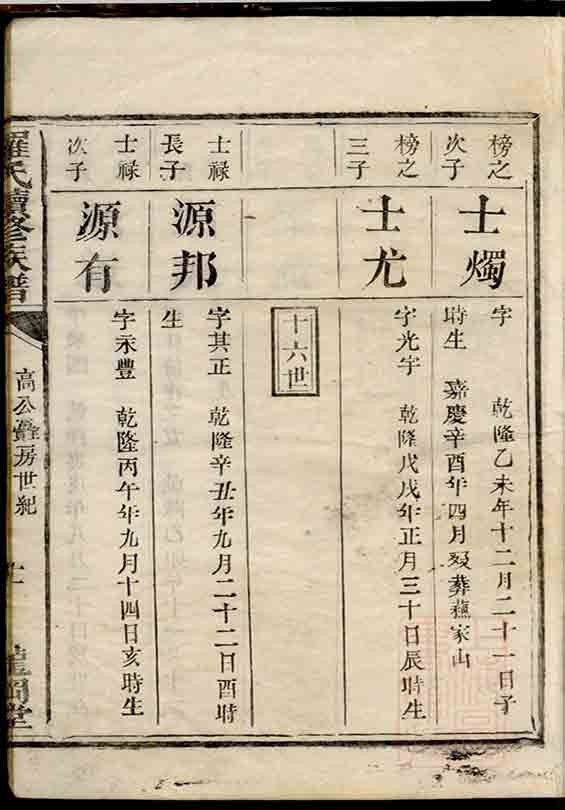 榜之
次子
士燭
字 乾隆乙未年十二月二十一日子
時生 嘉慶辛酉年四月歿葬蘓家山
榜之
三子
士尤
字光宇 乾隆戊戌年正月三十日辰時生
十六世
士禄
長子
源邦
字其正 乾隆辛丑年九月二十二日酉時
生
士禄
次子
源有
字永豐 乾隆丙午年九月十四日亥時生
羅氏續修族譜
高公 房世紀
堂